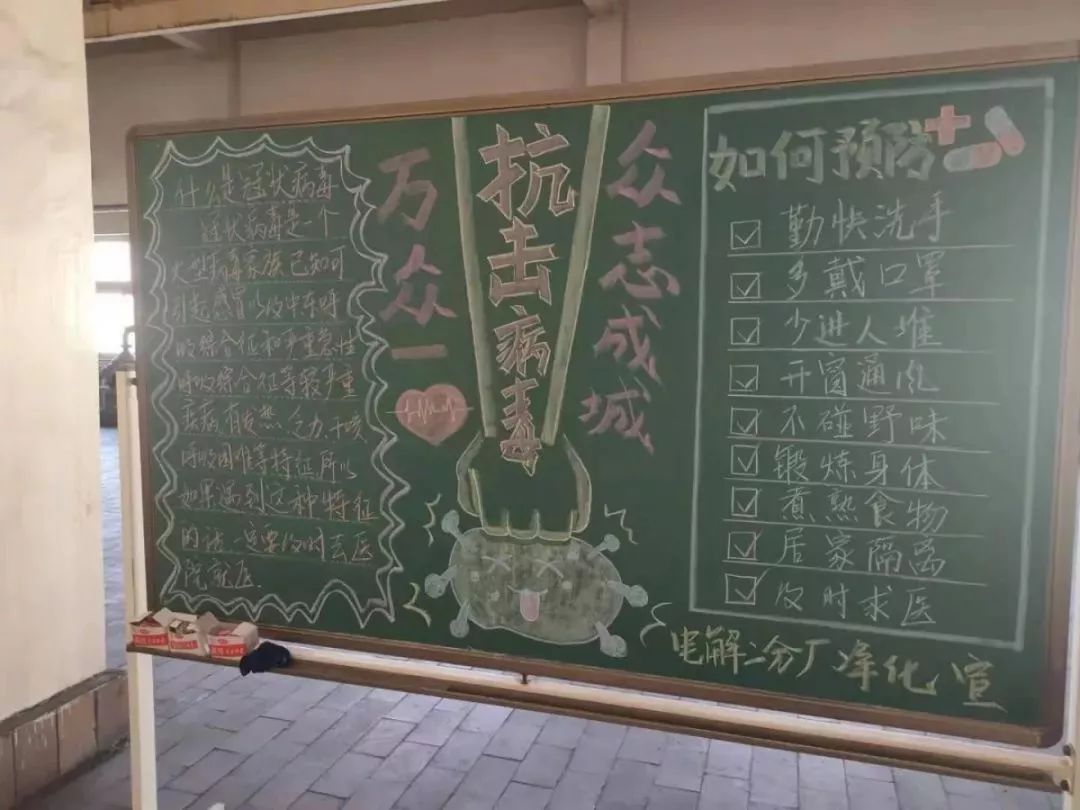 什么是冠状病毒
冠状病毒是一个
大型病毒家族已知可
引起感冒以及中东呼
吸综合征和严重急性
呼吸综合征等较严重
疾病,有发热、乏力、干咳
呼吸困难等特征所以
如果遇到这种特征
的话一定要及时去医
院就医
万众一
抗击病毒
众志成城
如何预防
勤快洗手
多戴口罩
少进人堆
开窗通风
不碰野味
锻炼身体
煮熟食物
居家隔离
及时求医
电解二分厂 净化 宣